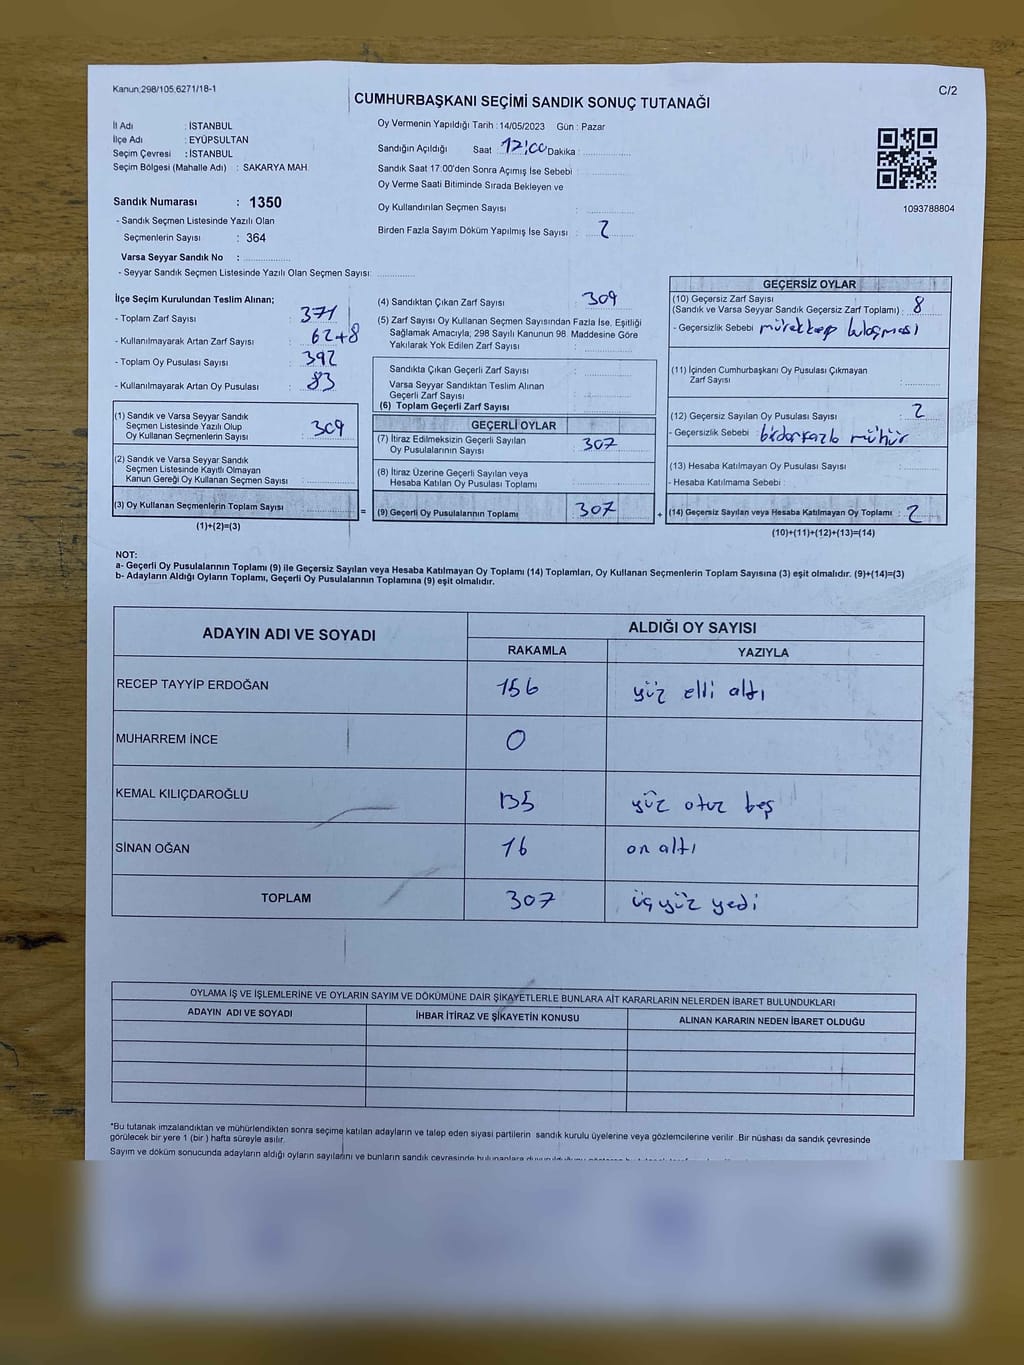 Kanun:298/105,6271/18-1
C/2
CUMHURBAŞKANI SEÇİMİ SANDIK SONUÇ TUTANAĞI
İl Adı : İSTANBUL
İlçe Adı : EYÜPSULTAN
Seçim Çevresi : İSTANBUL
Seçim Bölgesi (Mahalle Adı) : SAKARYA MAH.
Sandık Numarası : 1350
- Sandık Seçmen Listesinde Yazılı Olan
Seçmenlerin Sayısı : 364
Varsa Seyyar Sandık No :
- Seyyar Sandık Seçmen Listesinde Yazılı Olan Seçmen Sayısı:
Oy Vermenin Yapıldığı Tarih : 14/05/2023 Gün : Pazar
Sandığın Açıldığı Saat : 17:00 Dakika :
Sandık Saat 17:00'den Sonra Açımış İse Sebebi :
Oy Verme Saati Bitiminde Sırada Bekleyen ve
Oy Kullandırılan Seçmen Sayısı :
Birden Fazla Sayım Döküm Yapılmış İse Sayısı : 2
1093788804
İlçe Seçim Kurulundan Teslim Alınan;
- Toplam Zarf Sayısı : 371
- Kullanılmayarak Artan Zarf Sayısı : 62+8
- Toplam Oy Pusulası Sayısı : 392
- Kullanılmayarak Artan Oy Pusulası : 83
(1) Sandık ve Varsa Seyyar Sandık
Seçmen Listesinde Yazılı Olup
Oy Kullanan Seçmenlerin Sayısı : 309
(2) Sandık ve Varsa Seyyar Sandık
Seçmen Listesinde Kayıtlı Olmayan
Kanun Gereği Oy Kullanan Seçmen Sayısı :
(3) Oy Kullanan Seçmenlerin Toplam Sayısı
(1)+(2)=(3)
=
(4) Sandıktan Çıkan Zarf Sayısı : 309
(5) Zarf Sayısı Oy Kullanan Seçmen Sayısından Fazla İse, Eşitliği
Sağlamak Amacıyla; 298 Sayılı Kanunun 98. Maddesine Göre
Yakılarak Yok Edilen Zarf Sayısı :
Sandıkta Çıkan Geçerli Zarf Sayısı :
Varsa Seyyar Sandıktan Teslim Alınan
Geçerli Zarf Sayısı :
(6) Toplam Geçerli Zarf Sayısı :
GEÇERLİ OYLAR
(7) İtiraz Edilmeksizin Geçerli Sayılan
Oy Pusulalarının Sayısı : 307
(8) İtiraz Üzerine Geçerli Sayılan veya
Hesaba Katılan Oy Pusulası Toplamı :
(9) Geçerli Oy Pusulalarının Toplamı : 307
+
GEÇERSİZ OYLAR
(10) Geçersiz Zarf Sayısı
(Sandık ve Varsa Seyyar Sandık Geçersiz Zarf Toplamı) : 8
- Geçersizlik Sebebi : mürekkep bulaşması
(11) İçinden Cumhurbaşkanı Oy Pusulası Çıkmayan
Zarf Sayısı :
(12) Geçersiz Sayılan Oy Pusulası Sayısı : 2
- Geçersizlik Sebebi : birden fazla mühür
(13) Hesaba Katılmayan Oy Pusulası Sayısı :
- Hesaba Katılmama Sebebi :
(14) Geçersiz Sayılan veya Hesaba Katılmayan Oy Toplamı : 2
(10)+(11)+(12)+(13)=(14)
NOT:
a- Geçerli Oy Pusulalarının Toplamı (9) ile Geçersiz Sayılan veya Hesaba Katılmayan Oy Toplamı (14) Toplamları, Oy Kullanan Seçmenlerin Toplam Sayısına (3) eşit olmalıdır. (9)+(14)=(3)
b- Adayların Aldığı Oyların Toplamı, Geçerli Oy Pusulalarının Toplamına (9) eşit olmalıdır.
ADAYIN ADI VE SOYADI
ALDIĞI OY SAYISI
RAKAMLA
YAZIYLA
RECEP TAYYİP ERDOĞAN 156 yüz elli altı
MUHARREM İNCE 0
KEMAL KILIÇDAROĞLU 135 yüz otuz beş
SİNAN OĞAN 16 on altı
TOPLAM 307 üçyüz yedi
OYLAMA İŞ VE İŞLEMLERİNE VE OYLARIN SAYIM VE DÖKÜMÜNE DAİR ŞİKAYETLERLE BUNLARA AİT KARARLARIN NELERDEN İBARET BULUNDUKLARI
ADAYIN ADI VE SOYADI
İHBAR İTİRAZ VE ŞİKAYETİN KONUSU
ALINAN KARARIN NEDEN İBARET OLDUĞU
*Bu tutanak imzalandıktan ve mühürlendikten sonra seçime katılan adayların ve talep eden siyasi partilerin sandık kurulu üyelerine veya gözlemcilerine verilir. Bir nüshası da sandık çevresinde
görülecek bir yere 1 (bir) hafta süreyle asılır.
Sayım ve döküm sonucunda adayların aldığı oyların sayılarını ve bunların sandık çevresinde bulunanlara